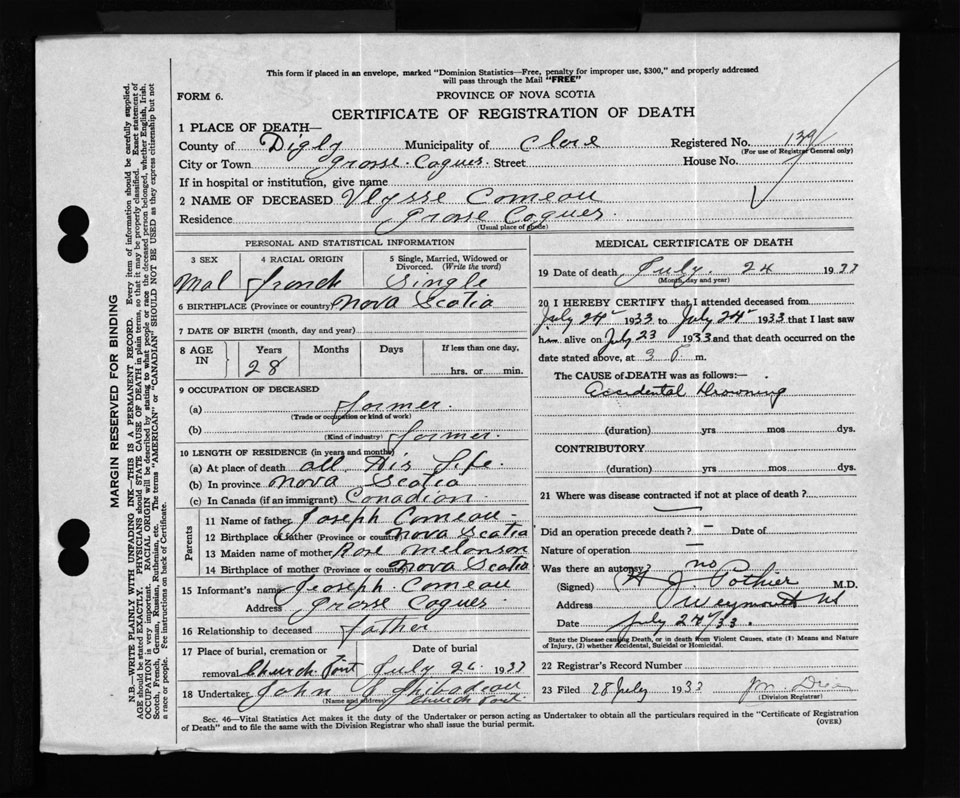 This form if placed in an envelope, marked "Dominion Statistics—Free, penalty for improper use, $300," and properly addressed
will pass through the Mail "FREE"
FORM 6.
PROVINCE OF NOVA SCOTIA
CERTIFICATE OF REGISTRATION OF DEATH
1 PLACE OF DEATH—
County of Digby Municipality of Clare Registered No. 139
(For use of Registrar General only)
City or Town Grosse Coques Street House No.
If in hospital or institution, give name
2 NAME OF DECEASED Ulysse Comeau
Residence Grosse Coques
(Usual place of abode)
MARGIN RESERVED FOR BINDING
N.B.—WRITE PLAINLY WITH UNFADING INK—THIS IS A PERMANENT RECORD. Every item of information should be carefully supplied.
AGE should be stated EXACTLY. PHYSICIANS should STATE CAUSE OF DEATH in plain terms, so that it may be properly classified. Exact statement of
OCCUPATION is very important. RACIAL ORIGIN will be described by stating to what people or race the deceased person belonged, whether English, Irish,
Scotch, French, German, Russian, Ruthenian, etc. The terms "AMERICAN" or "CANADIAN" SHOULD NOT BE USED as they express citizenship but not
a race or people. Fee instructions on back of Certificate.
PERSONAL AND STATISTICAL INFORMATION
3 SEX Mal
4 RACIAL ORIGIN french
5 Single, Married, Widowed or
Divorced. (Write the word)
Single
6 BIRTHPLACE (Province or country) Nova Scotia
7 DATE OF BIRTH (month, day and year)
8 AGE IN Years Months Days If less than one day,
28 hrs. or min.
9 OCCUPATION OF DECEASED
(a) farmer
(Trade or occupation or kind of work)
(b) farmer
(Kind of industry)
10 LENGTH OF RESIDENCE (in years and months)
(a) At place of death all His life
(b) In province Nova Scotia
(c) In Canada (if an immigrant) Canadian
Parents
11 Name of father Joseph Comeau
12 Birthplace of father (Province or country) Nova Scotia
13 Maiden name of mother Rose Melanson
14 Birthplace of mother (Province or country) Nova Scotia
15 Informant's name Joseph Comeau
Address Grosse Coques
16 Relationship to deceased father
17 Place of burial, cremation or Date of burial
removal Church Point July 26 1933
18 Undertaker John J Thibadeau
(Name and address) Church Point
MEDICAL CERTIFICATE OF DEATH
19 Date of death July 24 1933
(Month, day and year)
20 I HEREBY CERTIFY that I attended deceased from
July 24 1933 to July 24 1933 that I last saw
him alive on July 23 1933 and that death occurred on the
date stated above, at 3 P m.
The CAUSE of DEATH was as follows:—
Accidental Drowning
(duration) yrs mos dys.
CONTRIBUTORY
(duration) yrs mos dys.
21 Where was disease contracted if not at place of death?
Did an operation precede death? — Date of
Nature of operation —
Was there an autopsy? no
(Signed) H J. Pothier M.D.
Address Weymouth NS
Date July 24/33.
State the Disease causing Death, or in death from Violent Causes, state (1) Means and Nature
of Injury, (2) whether Accidental, Suicidal or Homicidal.
22 Registrar's Record Number
23 Filed 28 July 1933
(Division Registrar)
Sec. 46—Vital Statistics Act makes it the duty of the Undertaker or person acting as Undertaker to obtain all the particulars required in the "Certificate of Registration
of Death" and to file the same with the Division Registrar who shall issue the burial permit.
(OVER)